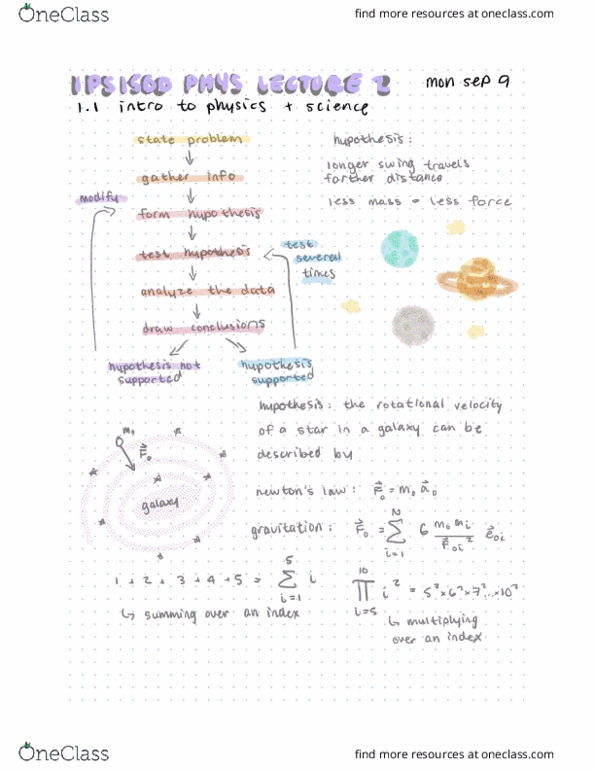 OneClass
find more resources at oneclass.com
IPS1500 PHYS LECTURE 2
mon sep 9
1.1 intro to physics + science
state problem
gather info
modify
form hypothesis
test hypothesis
test several times
analyze the data
draw conclusions
hypothesis not supported
hypothesis supported
hypothesis:
longer swing travels
farther distance
less mass = less force
hypothesis: the rotational velocity
of a star in a galaxy can be
described by
m₀
F⃗₀
galaxy
newton's law: F⃗₀ = m₀ a⃗₀
gravitation: F⃗₀ = ∑ᵢ₌₁ᴺ G m₀ mᵢ / r⃗₀ᵢ² e⃗₀ᵢ
1 + 2 + 3 + 4 + 5 = ∑ᵢ₌₁⁵ i
↳ summing over an index
∏ᵢ₌₅¹⁰ i² = 5² × 6² × 7² ... × 10²
↳ multiplying
over an index
OneClass
find more resources at oneclass.com